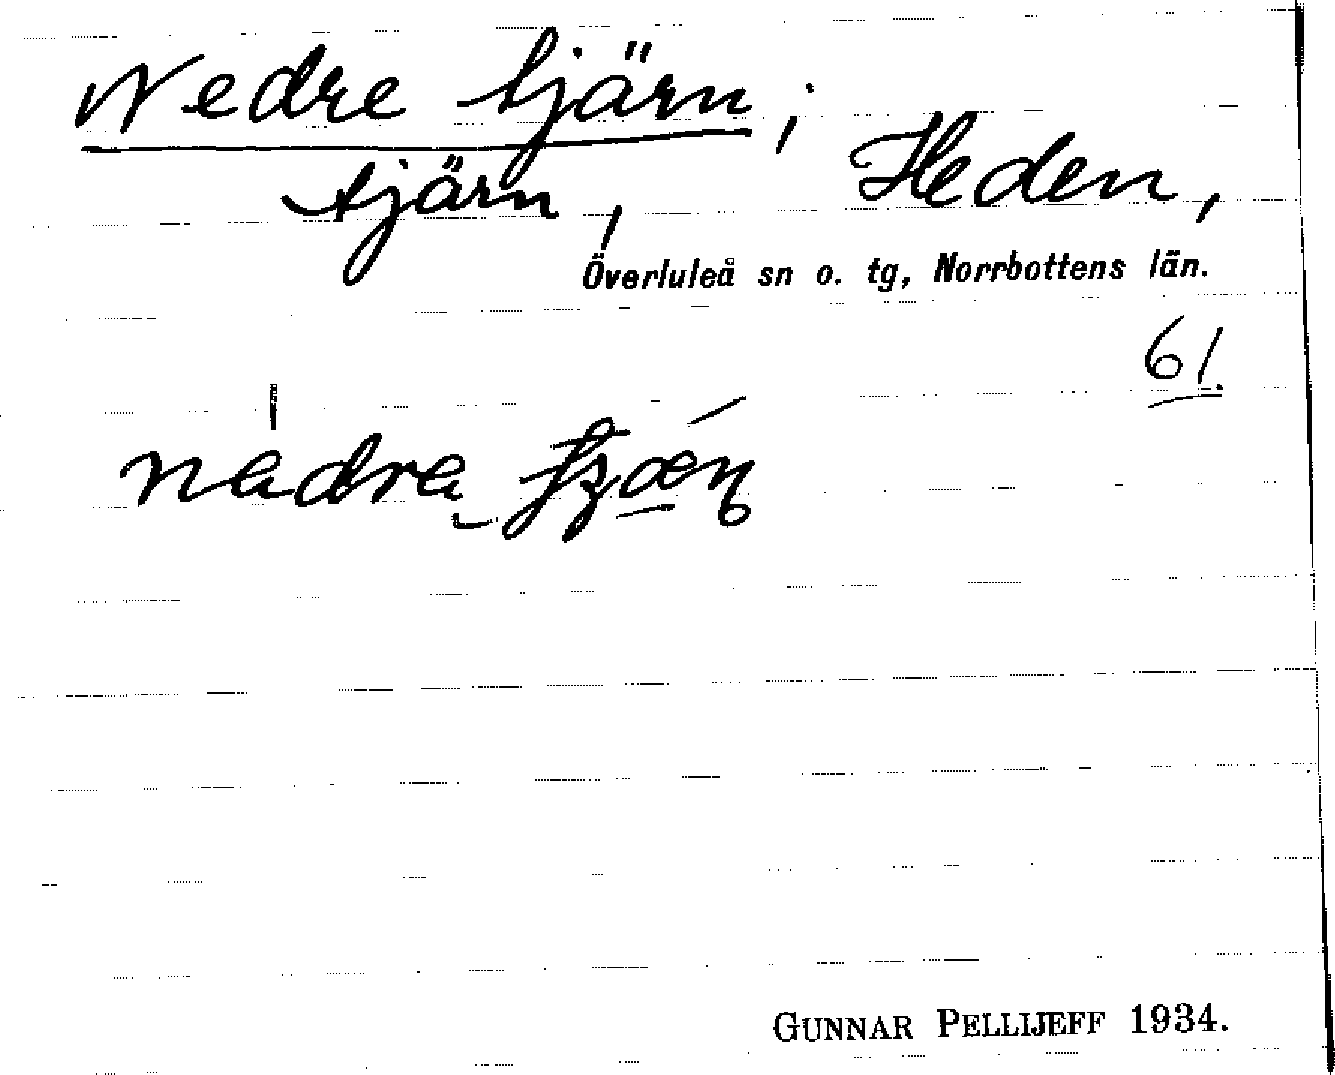 Nedre tjärn;
tjärn, Heden,
Överluleå sn o. tg, Norrbottens län.
61.
GUNNAR PELLIJEFF 1934.